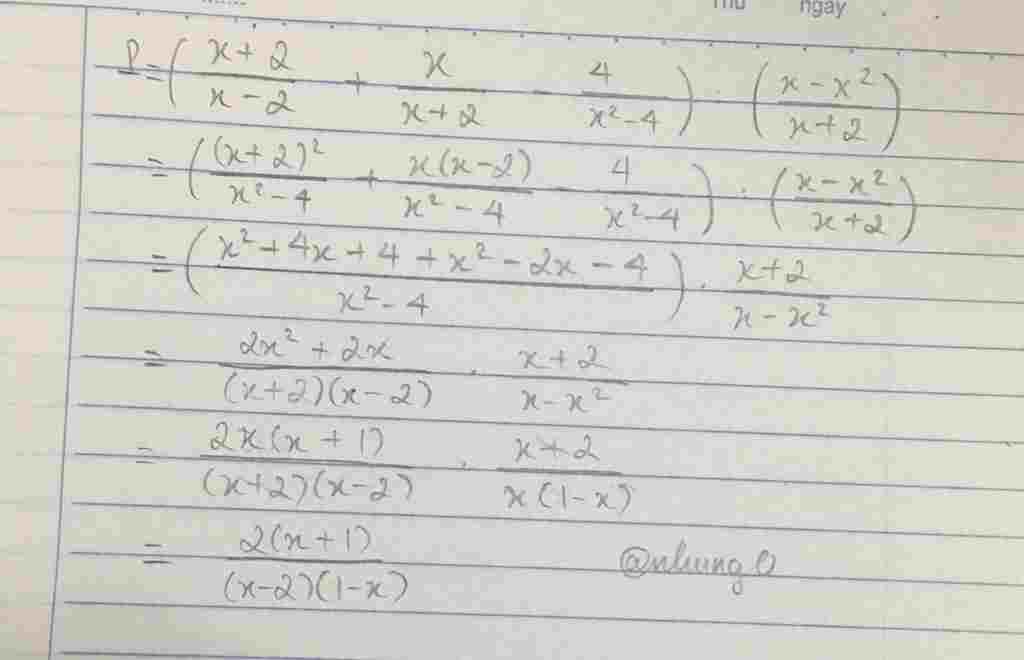 Thứ ngày
P = ( (x+2)/(x-2) + x/(x+2) - 4/(x²-4) ) : ( (x-x²)/(x+2) )
= ( (x+2)²/(x²-4) + x(x-2)/(x²-4) - 4/(x²-4) ) : ( (x-x²)/(x+2) )
= ( (x²+4x+4+x²-2x-4)/(x²-4) ) . (x+2)/(x-x²)
= (2x²+2x)/((x+2)(x-2)) . (x+2)/(x-x²)
= 2x(x+1)/((x+2)(x-2)) . (x+2)/(x(1-x))
= 2(x+1)/((x-2)(1-x)) @nhung